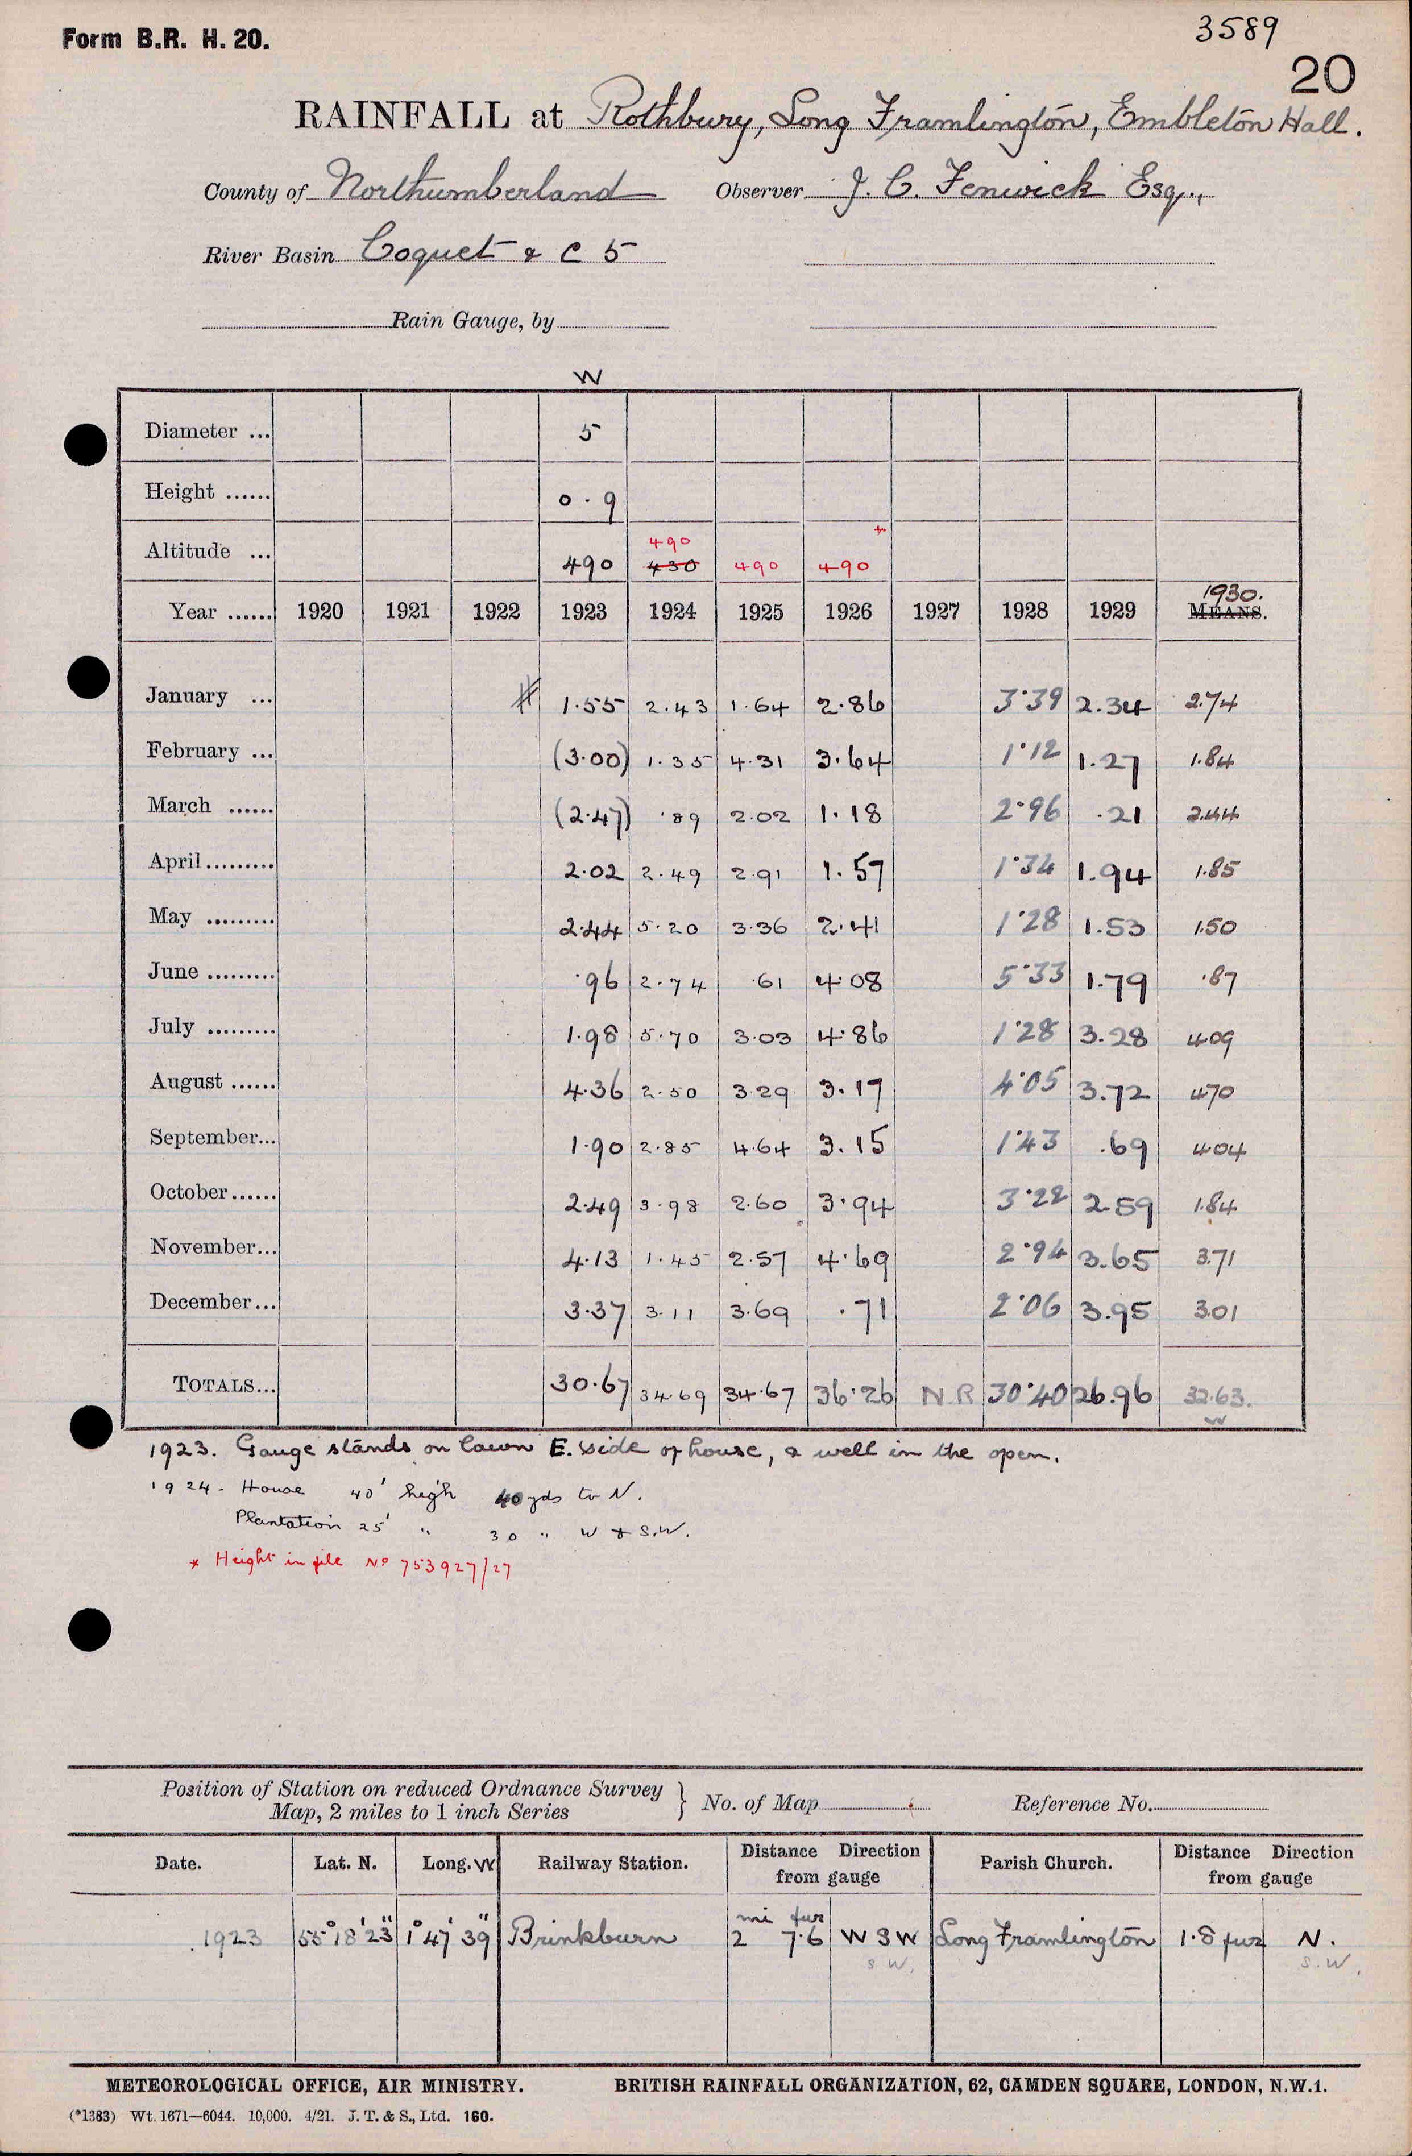 Form B.R. H. 20.
3589
20
RAINFALL at Rothbury, Long Framlington, Embleton Hall.
County of Northumberland Observer J. C. Fenwick Esq.,
River Basin Coquet & C 5
Rain Gauge, by
W
Diameter ... 5
Height ...... 0.9
490 *
Altitude ... 490 430 490 490
1930.
Year ...... 1920 1921 1922 1923 1924 1925 1926 1927 1928 1929 MEANS.
January ... # 1.55 2.43 1.64 2.86 3.39 2.34 2.74
February ... (3.00) 1.35 4.31 3.64 1.12 1.27 1.84
March ...... (2.47) .89 2.02 1.18 2.96 .21 2.44
April ......... 2.02 2.49 2.91 1.57 1.34 1.94 1.85
May ......... 2.44 5.20 3.36 2.41 1.28 1.53 1.50
June ......... .96 2.74 .61 4.08 5.33 1.79 .87
July ......... 1.98 5.70 3.03 4.86 1.28 3.28 4.09
August ...... 4.36 2.50 3.29 3.17 4.05 3.72 4.70
September... 1.90 2.85 4.64 3.15 1.43 .69 4.04
October ...... 2.49 3.98 2.60 3.94 3.22 2.59 1.84
November... 4.13 1.45 2.57 4.69 2.94 3.65 3.71
December... 3.37 3.11 3.69 .71 2.06 3.95 3.01
TOTALS... 30.67 34.69 34.67 36.26 N.R 30.40 26.96 32.63.
W
1923. Gauge stands on lawn E. side of house, & well in the open.
1924 - House 40' high 40 yds to N.
Plantation 25' " 30 " W & S.W.
* Height in file No 753927/27
Position of Station on reduced Ordnance Survey
Map, 2 miles to 1 inch Series } No. of Map Reference No.
Date. Lat. N. Long. W Railway Station. Distance Direction from gauge Parish Church. Distance Direction from gauge
mi fur
1923 55° 18' 23" 1° 47' 39" Brinkburn 2 7.6 W S W Long Framlington 1.8 fur N.
S W. S.W.
METEOROLOGICAL OFFICE, AIR MINISTRY. BRITISH RAINFALL ORGANIZATION, 62, CAMDEN SQUARE, LONDON, N.W.1.
(*1383) Wt. 1671—6044. 10,000. 4/21. J. T. & S., Ltd. 160.